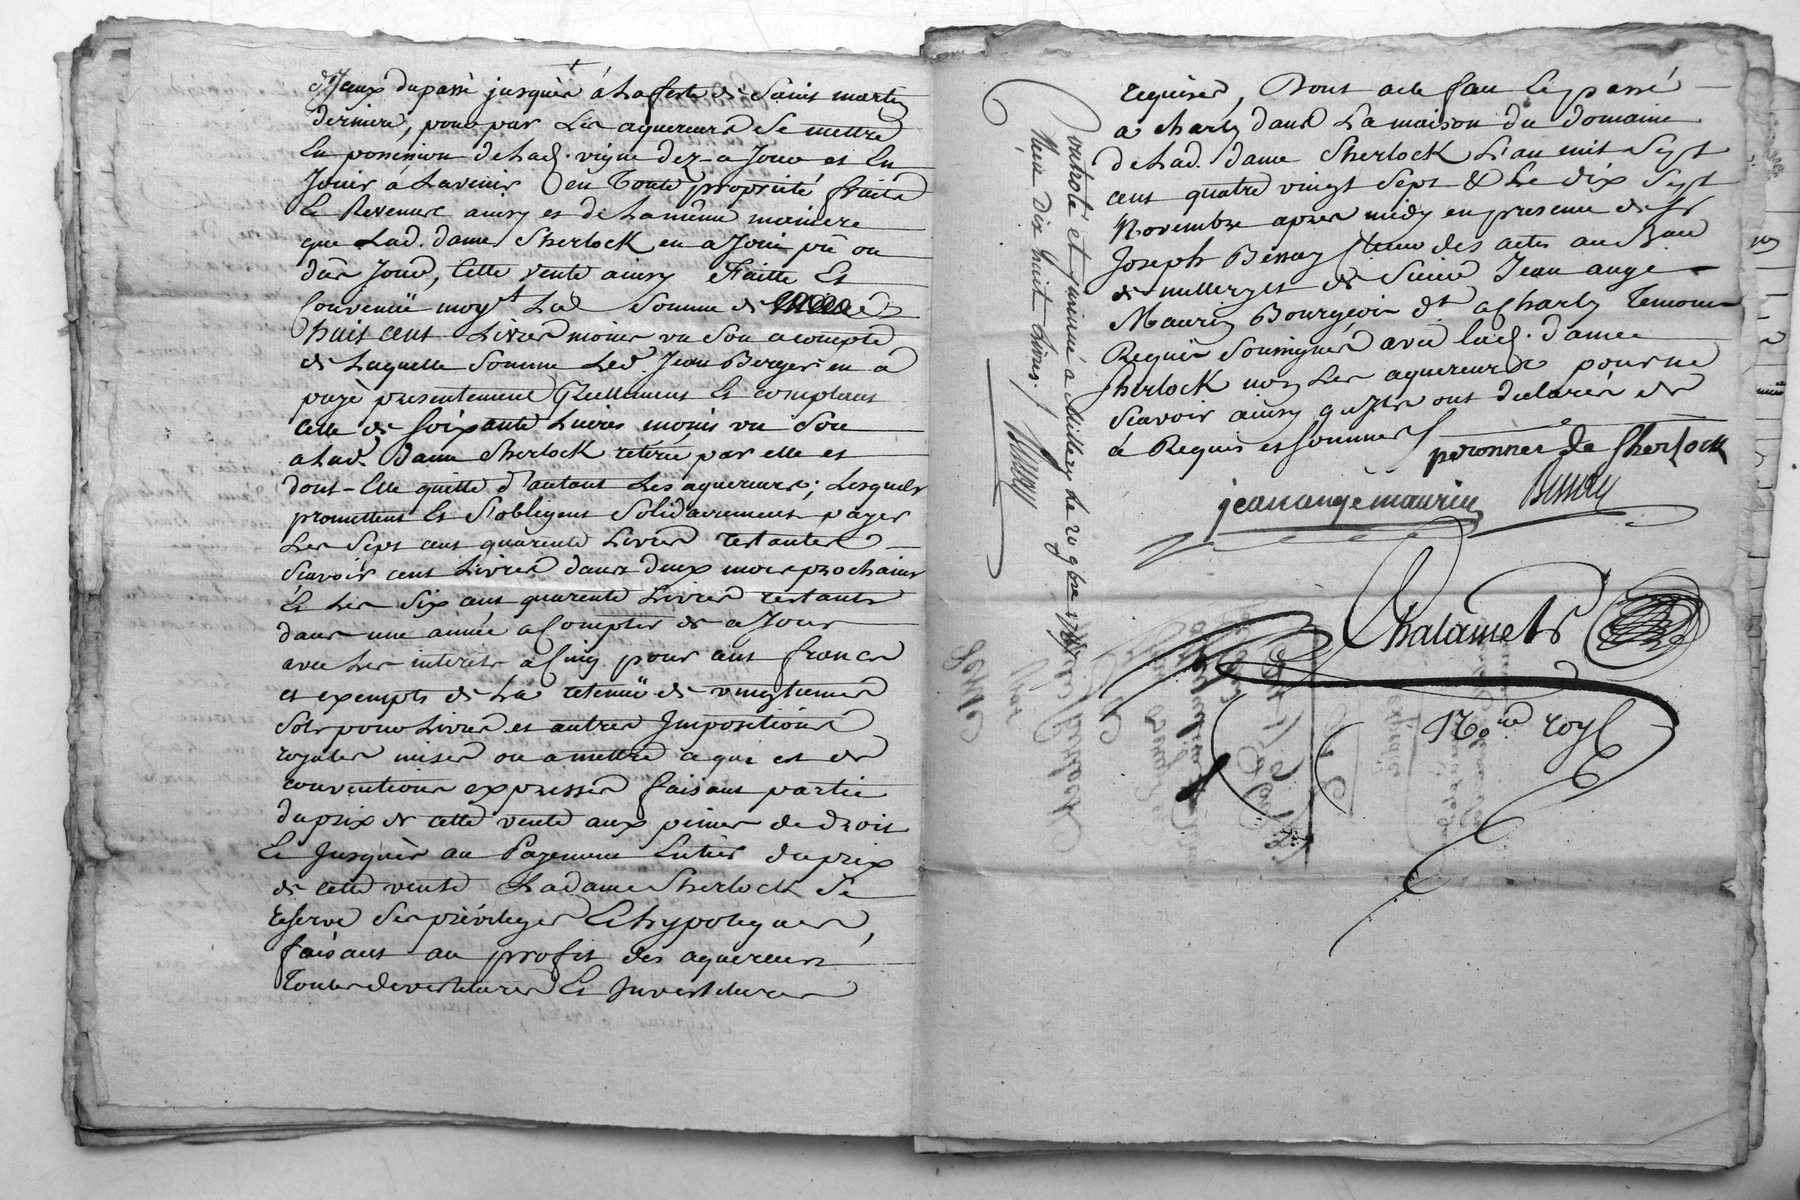 d'Iceux du passé jusques á La feste de Saint martin
derniere, pour par Les aquereurs Se mettre
En possession de Lad. vigne dez-a Jour et En
Jouir á Lavenir en Toute proprieté fruits
Et Revenus ainsy et de La même maniere
que Lad. dame Sherlock en a Joui pû ou
dûs Jouir, Cette vente ainsy Faitte Et
Convenuë moyt. Lad. Somme de
huit cent Livres moins un Sou a compte
de Laquelle Somme Led. Jean Berger en á
payé presentement Réellement Et comptant
celle de soixante Livres moins un Sou
a Lad. Dame Sherlock retirée par elle et
dont-Elle quitte d'autant Les aquereurs; Lesquels
promettent Et S'obligent Solidairement payer
Les Sept cent quarente Livres restantes
Scavoir cent Livres dans deux mois prochains
Et Les Six cent quarente Livres restants
dans une année a Compter de ce Jour
avec Les interets a Cinq pour cent francs
et exempts de La retenuë de vingtiemes
Sols pour Livres et autres Impositions
royales mises ou a mettre ce que est de
conventions expresses faisant partie
du prix de cette vente aux peines de droit
Et Jusques au Payement Entier du prix
de cette vente Ladame Sherlock Se
reserve Ses privileges Et hypoteques,
faisant au profit des aquereurs
Toutes devestitures Et Investitures
requises, Dont acte fait Et passé
a charly dans La maison du domaine
de Lad. dame Sherlock L'an mil Sept
cent quatre vingt Sept & Le dix Sept
Novembre apres midy en presence de Sr
Joseph Bessoy des actes au Bau
de millery et de Jean ange
Maurin Bourgeois dt. a Charly Temoins
Requis Soussignés avec lad. dame
Sherlock non Les aquereurs pour ne
Scavoir ainsy qu'Ils ont declarés de
ce Requis et sommés
peronnet de Sherlock
jean ange maurin Bessoy
Chalamel
Nore royl
Controlé et a Millery le 20 9bre 1787
Reçu Dix huit Livres. Bessoy